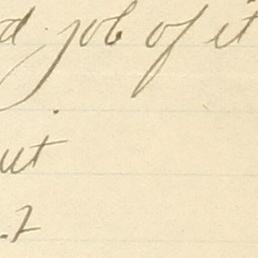 d job of it
ut